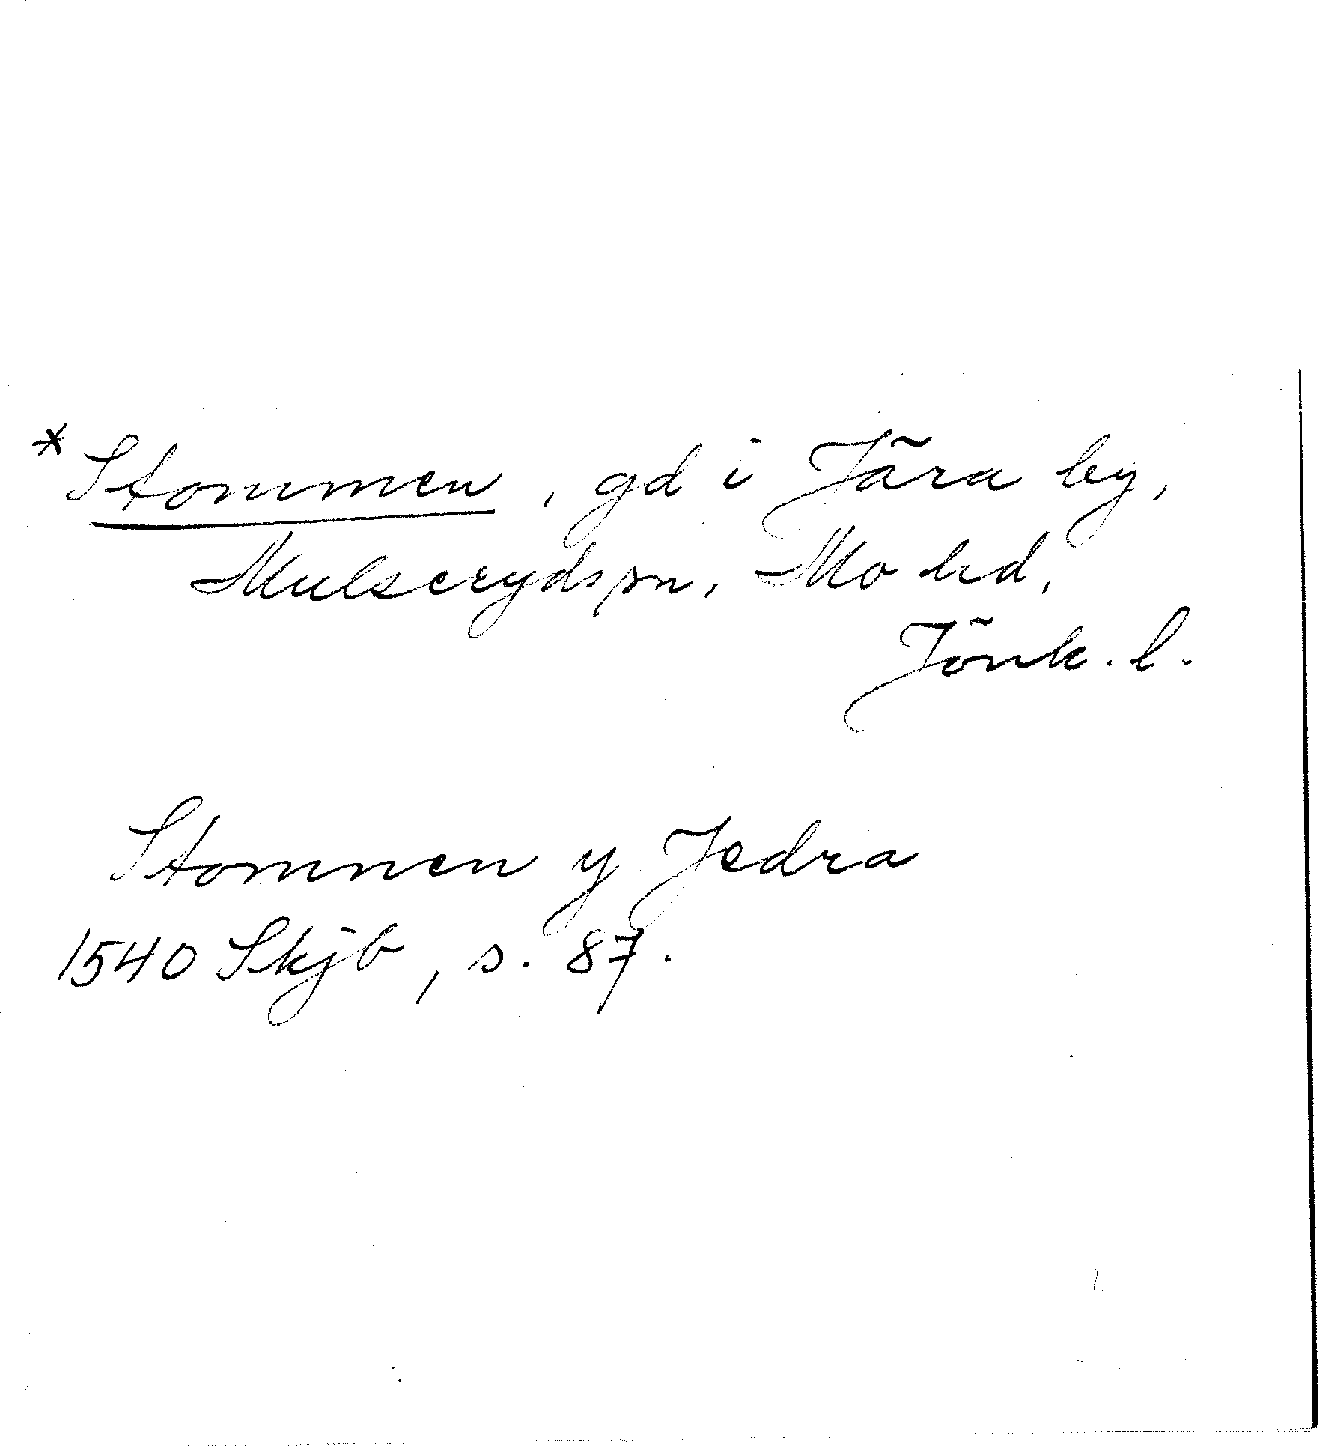 * Stommen, gd i Jära by,
Mulserydsn, Mo hd,
Jönk. l.
Stomnen y Jedra
1540 Skjb, s. 87.